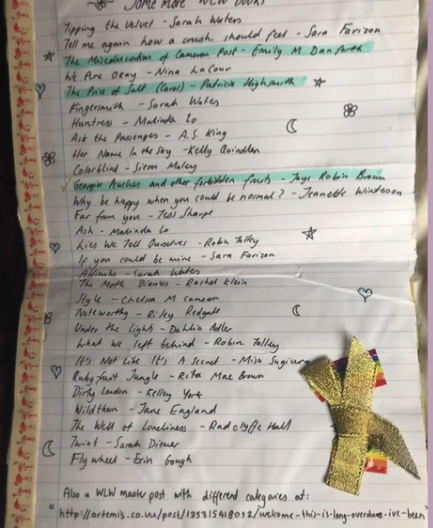 Some more WLW books
Tipping the Velvet - Sarah Waters
Tell me again how a crush should feel - Sara Farizan
The Miseducation of Cameron Post - Emily M Danforth
We Are Okay - Nina LaCour
The Price of Salt (Carol) - Patricia Highsmith
Fingersmith - Sarah Waters
Huntress - Malinda Lo
Ask the Passengers - A.S. King
Her Name In the Sky - Kelly Quindlen
Colorblind - Siera Maley
Georgia Peaches and other forbidden fruits - Jaye Robin Brown
Why be happy when you could be normal? - Jeanette Winterson
Far from you - Tess Sharpe
Ash - Malinda Lo
Lies We Tell Ourselves - Robin Talley
If you could be mine - Sara Farizan
Affinity - Sarah Waters
The Moth Diaries - Rachel Klein
Style - Chelsea M Cameron
Noteworthy - Riley Redgate
Under the Lights - Dahlia Adler
What we left behind - Robin Talley
It's Not Like It's A Secret - Misa Sugiura
Rubyfruit Jungle - Rita Mae Brown
Dirty London - Kelley York
Wildthorn - Jane England
The Well of Loneliness - Radclyffe Hall
Twixt - Sarah Diemer
Flywheel - Erin Gough
Also a WLW master post with different categories at:
"http://artemis.co.vu/post/135315418012/welcome-this-is-long-overdue-ive-been"